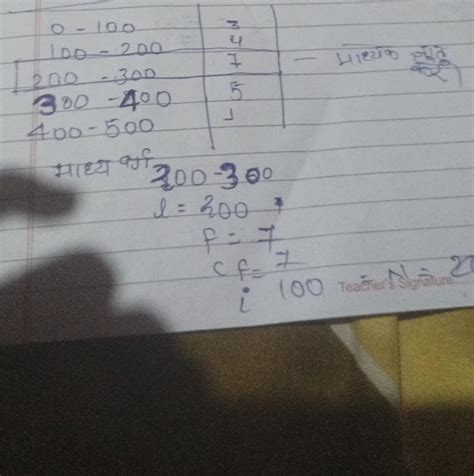 0 - 100 3
100 - 200 4
200 - 300 7 - माध्यक
300 - 400 5
400 - 500 1
माध्य वर्ग 200 - 300
l = 200
f = 7
cf = 7
i 100 Teacher's Signature N = 2